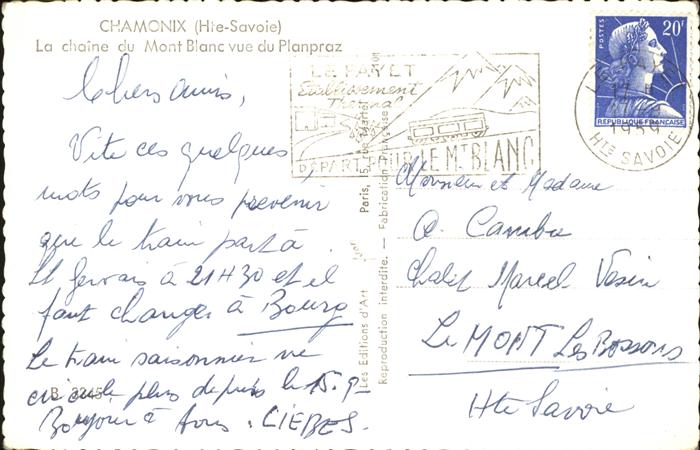 CHAMONIX (Hte-Savoie)
La chaîne du Mont Blanc vue du Planpraz
Chers amis,
Vite ces quelques
mots pour vous prevenir
que le train part à
St Gervais à 21H30 et il
faut changer à Bourg
Le train saisonnier ne
circule plus depuis le 15.9
Bonjour à tous.
B. 3245
LE FAYET
Etablissement
Thermal
DEPART POUR LE Mt BLANC
Les Editions d'Art
Paris, 15,
Reproduction Interdite. — Fabrication Française
POSTES
20F
REPUBLIQUE FRANÇAISE
LE FAYET
1959
HTE SAVOIE
Monsieur et Madame
Chalet Marcel
Le MONT Les Bossons
Hte Savoie